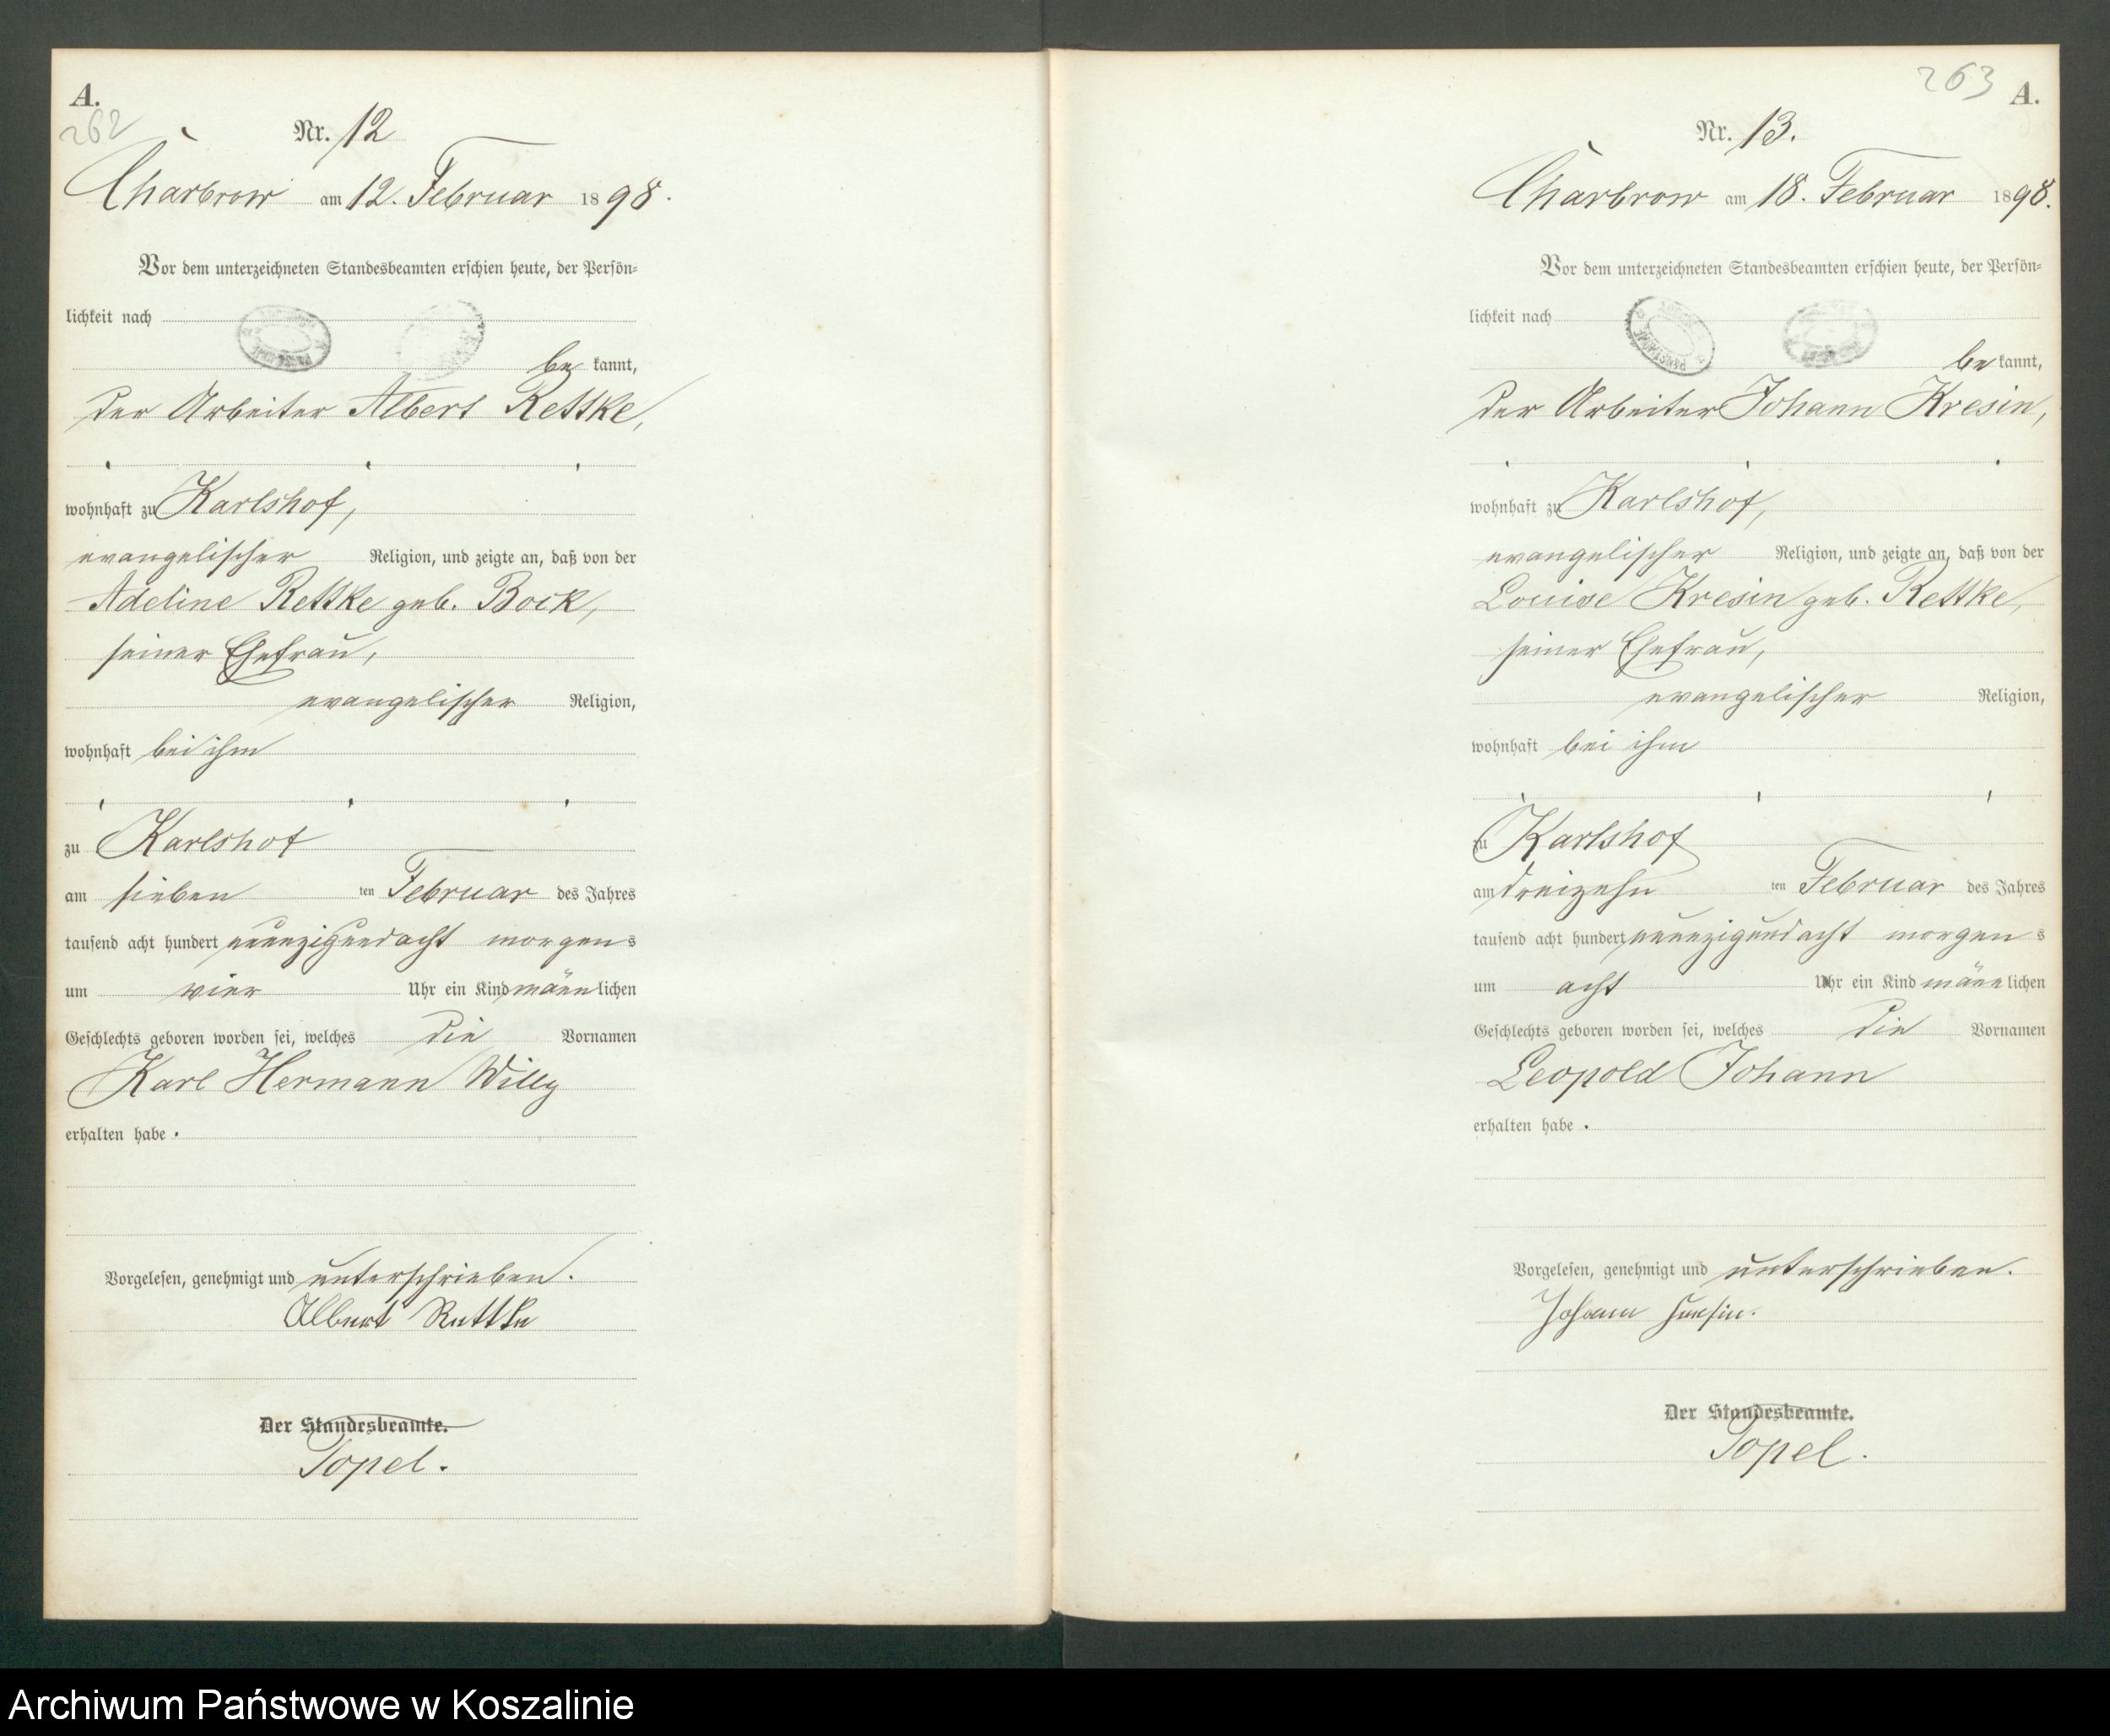 A.
262
Nr. 12
Charbrow am 12. Februar 1898.
Vor dem unterzeichneten Standesbeamten erschien heute, der Persön-
lichkeit nach
bekannt,
der Arbeiter Albert Rettke,
wohnhaft zu Karlshof,
evangelischer Religion, und zeigte an, daß von der
Adeline Rettke geb. Bock,
seiner Ehefrau,
evangelischer Religion,
wohnhaft bei ihm
zu Karlshof
am sieben ten Februar des Jahres
tausend acht hundert neunzigundacht morgens
um vier Uhr ein Kind männlichen
Geschlechts geboren worden sei, welches die Vornamen
Karl Hermann Willy
erhalten habe.
Vorgelesen, genehmigt und unterschrieben.
Albert Rettke
Der Standesbeamte.
Topel.
263
A.
Nr. 13.
Charbrow am 18. Februar 1898.
Vor dem unterzeichneten Standesbeamten erschien heute, der Persön-
lichkeit nach
bekannt,
der Arbeiter Johann Kresin,
wohnhaft zu Karlshof,
evangelischer Religion, und zeigte an, daß von der
Louise Kresin geb. Rettke,
seiner Ehefrau,
evangelischer Religion,
wohnhaft bei ihm
zu Karlshof
am dreizehn ten Februar des Jahres
tausend acht hundert neunzigundacht morgens
um acht Uhr ein Kind männlichen
Geschlechts geboren worden sei, welches die Vornamen
Leopold Johann
erhalten habe.
Vorgelesen, genehmigt und unterschrieben.
Johann Kresin.
Der Standesbeamte.
Topel.
Archiwum Państwowe w Koszalinie